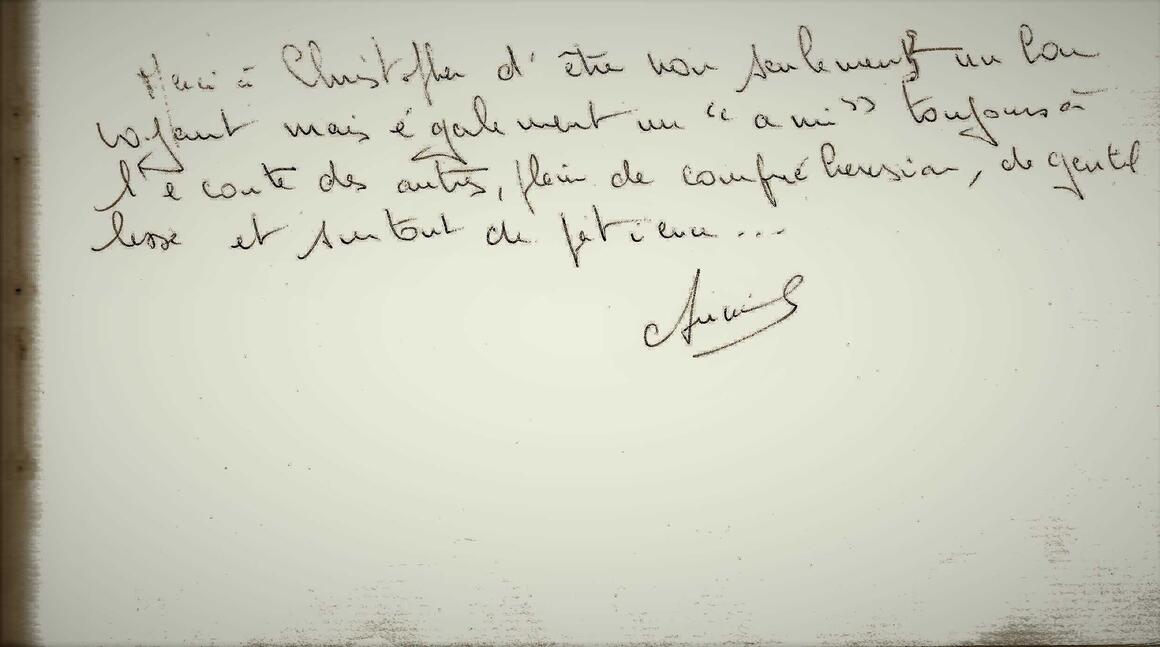 Merci à Christopher d'être non seulement un bon
voyant mais également un "ami" toujours à
l'écoute des autres, plein de compréhension, de gentil
lesse et surtout de patience ...